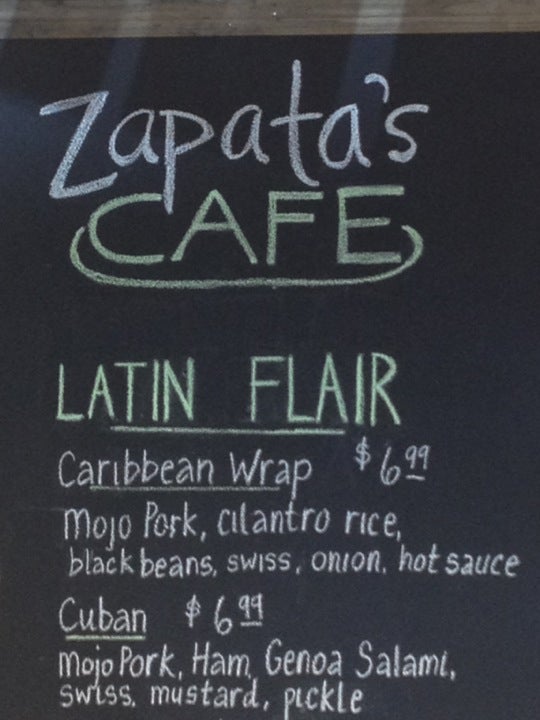 Zapata's
CAFE
LATIN FLAIR
Caribbean Wrap $6.99
Mojo Pork, cilantro rice,
black beans, swiss, onion, hot sauce
Cuban $6.99
Mojo Pork, Ham, Genoa Salami,
swiss, mustard, pickle